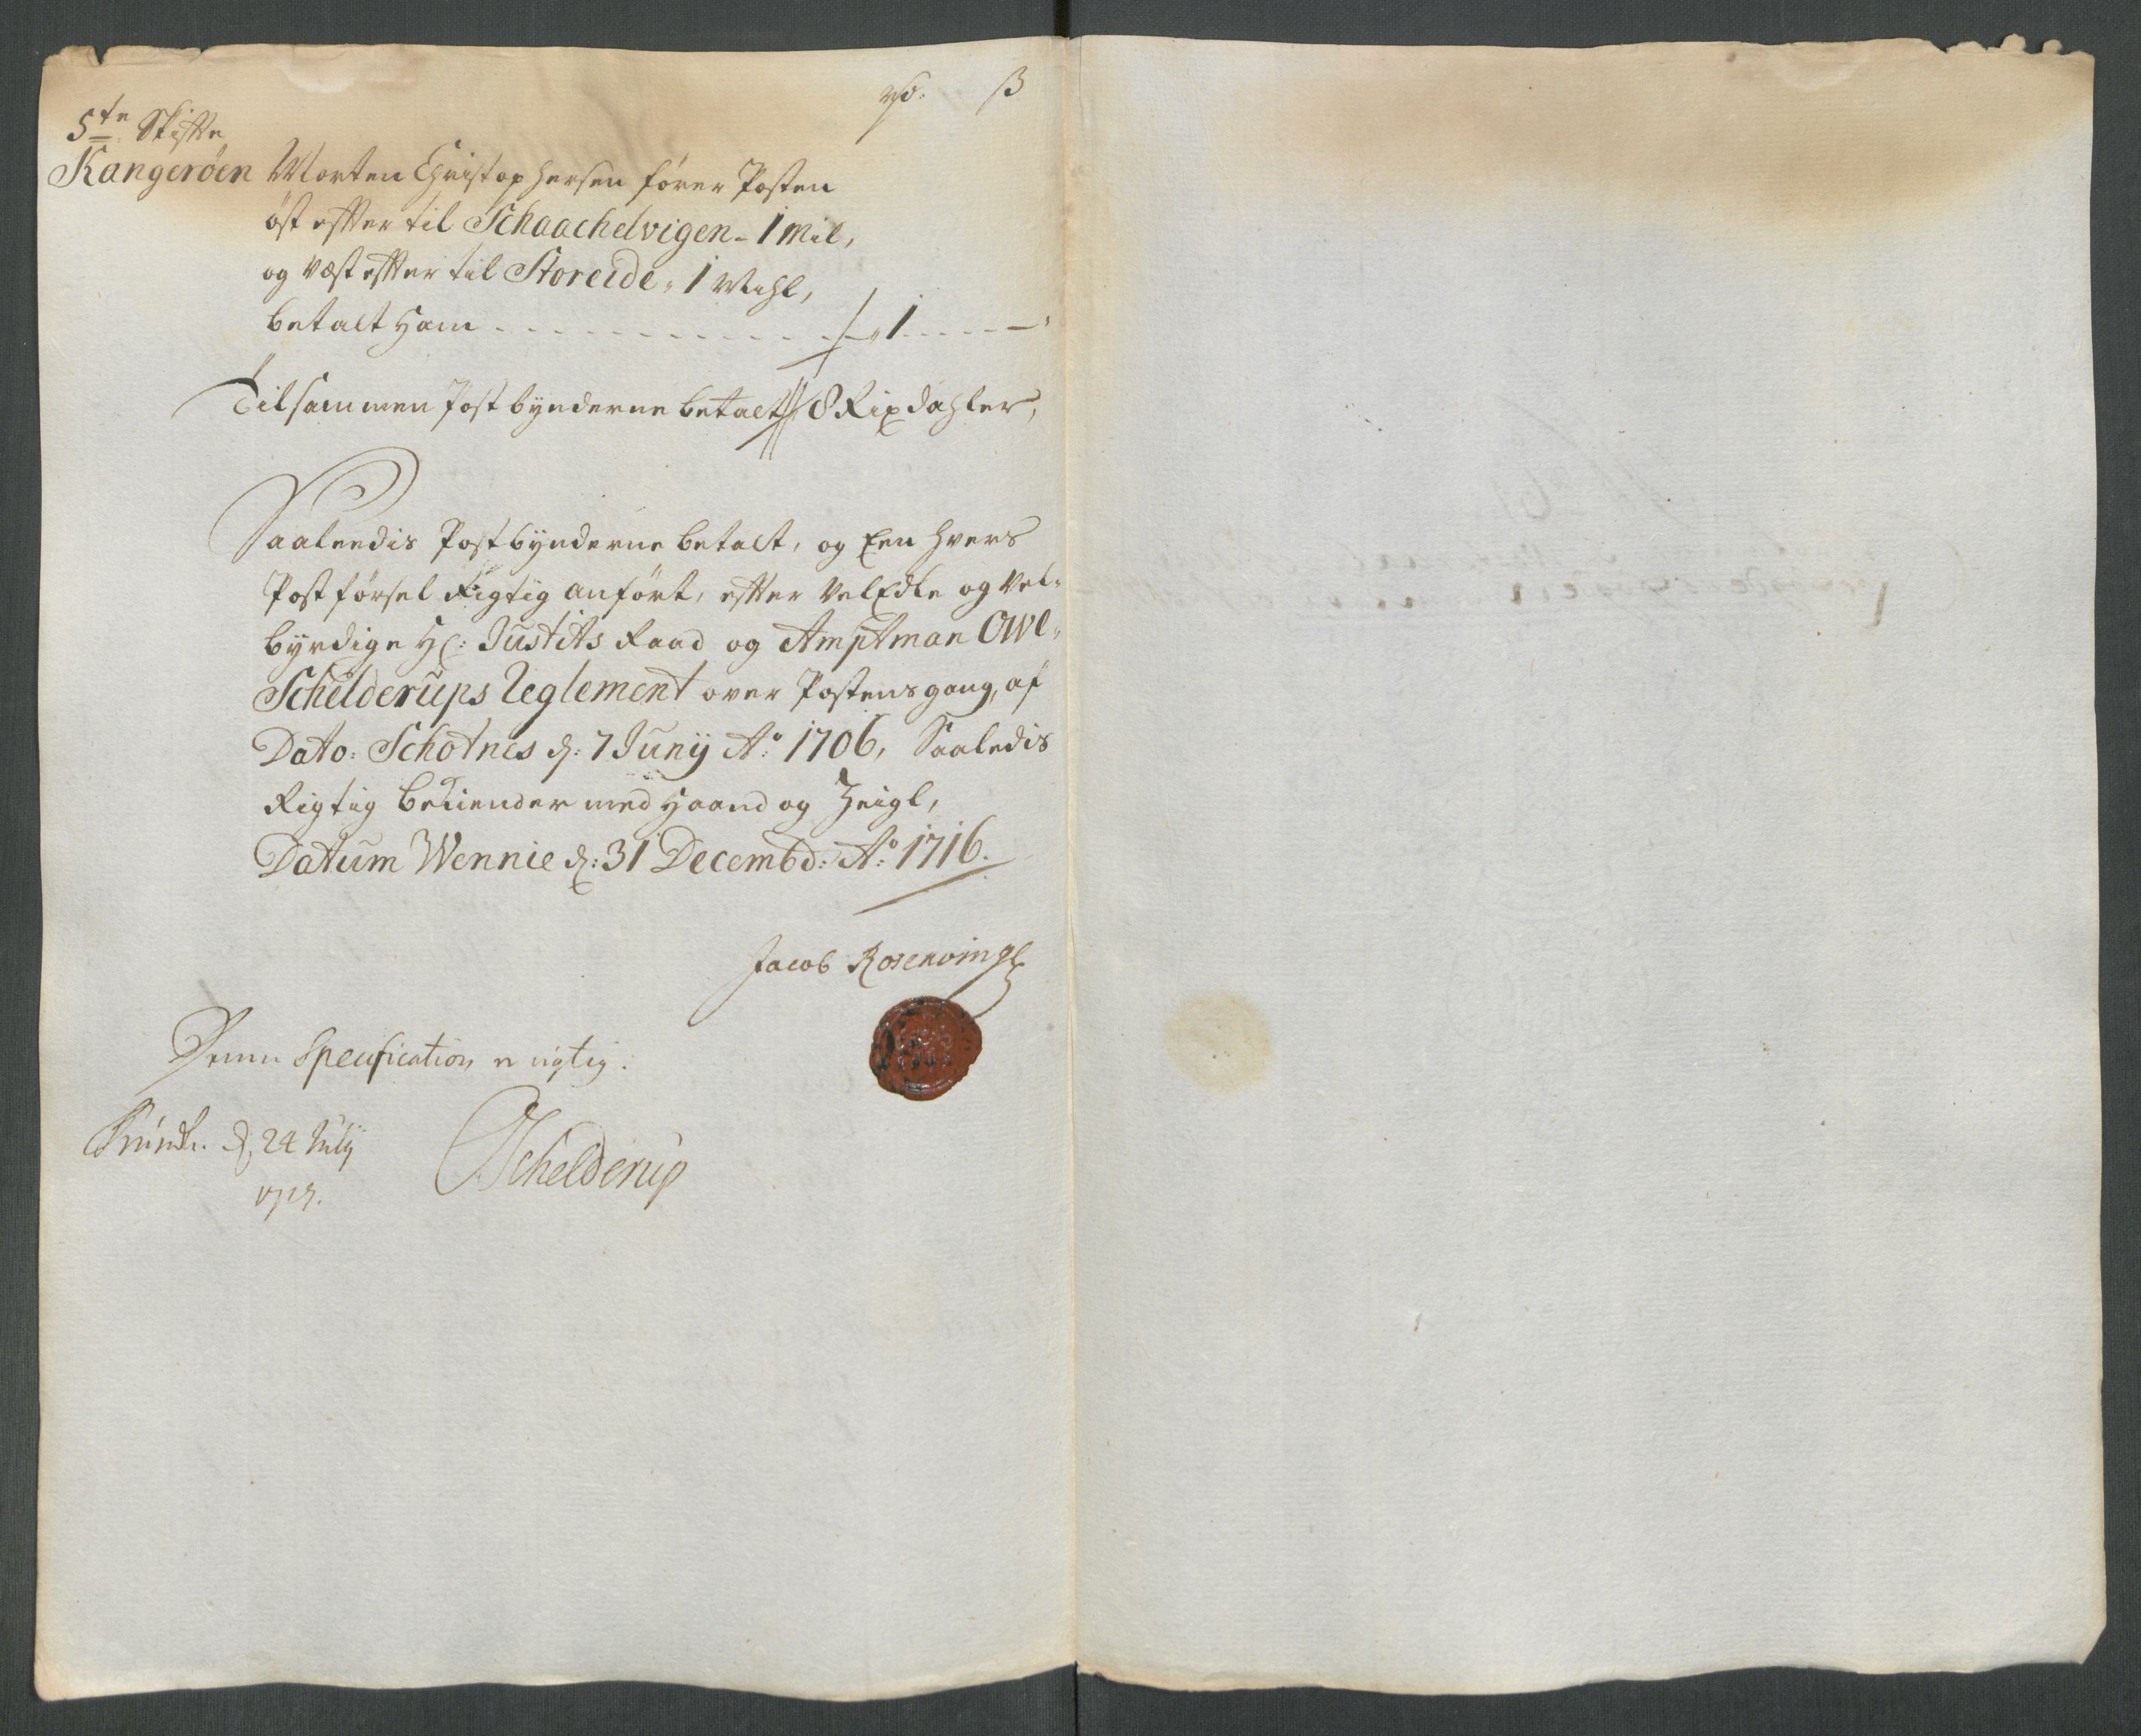 rd: ß
5te Skifte
Kangerøen Morten Christophersen fører Posten
øst efter til Schaachelvigen - 1 Mil,
og væst efter til Storeide, 1 Miihl,
betalt Ham . . . . . . . . . . 1 . . . . —
Tilsammen Postbynderne betalt 8 Rixdahler,
Saaleedis Postbynderne betalt, og Een hvers
Postførsel Rigtig anført, efter VelEdle og Vel-
byrdige Hr: Justits Raad og Amptman Owe
Schelderups Reglement over Postens gang, af
Dato: Schotnes d: 7 Junij Ao: 1706, Saaledis
Rigtig bekiender med Haand og Zeigl,
Datum Wennie d: 31 Decembd: Ao: 1716.
Jacob Rosenvinge
Denne Specification er rigtig.
d. 24 Julij
1717.
OSchelderup